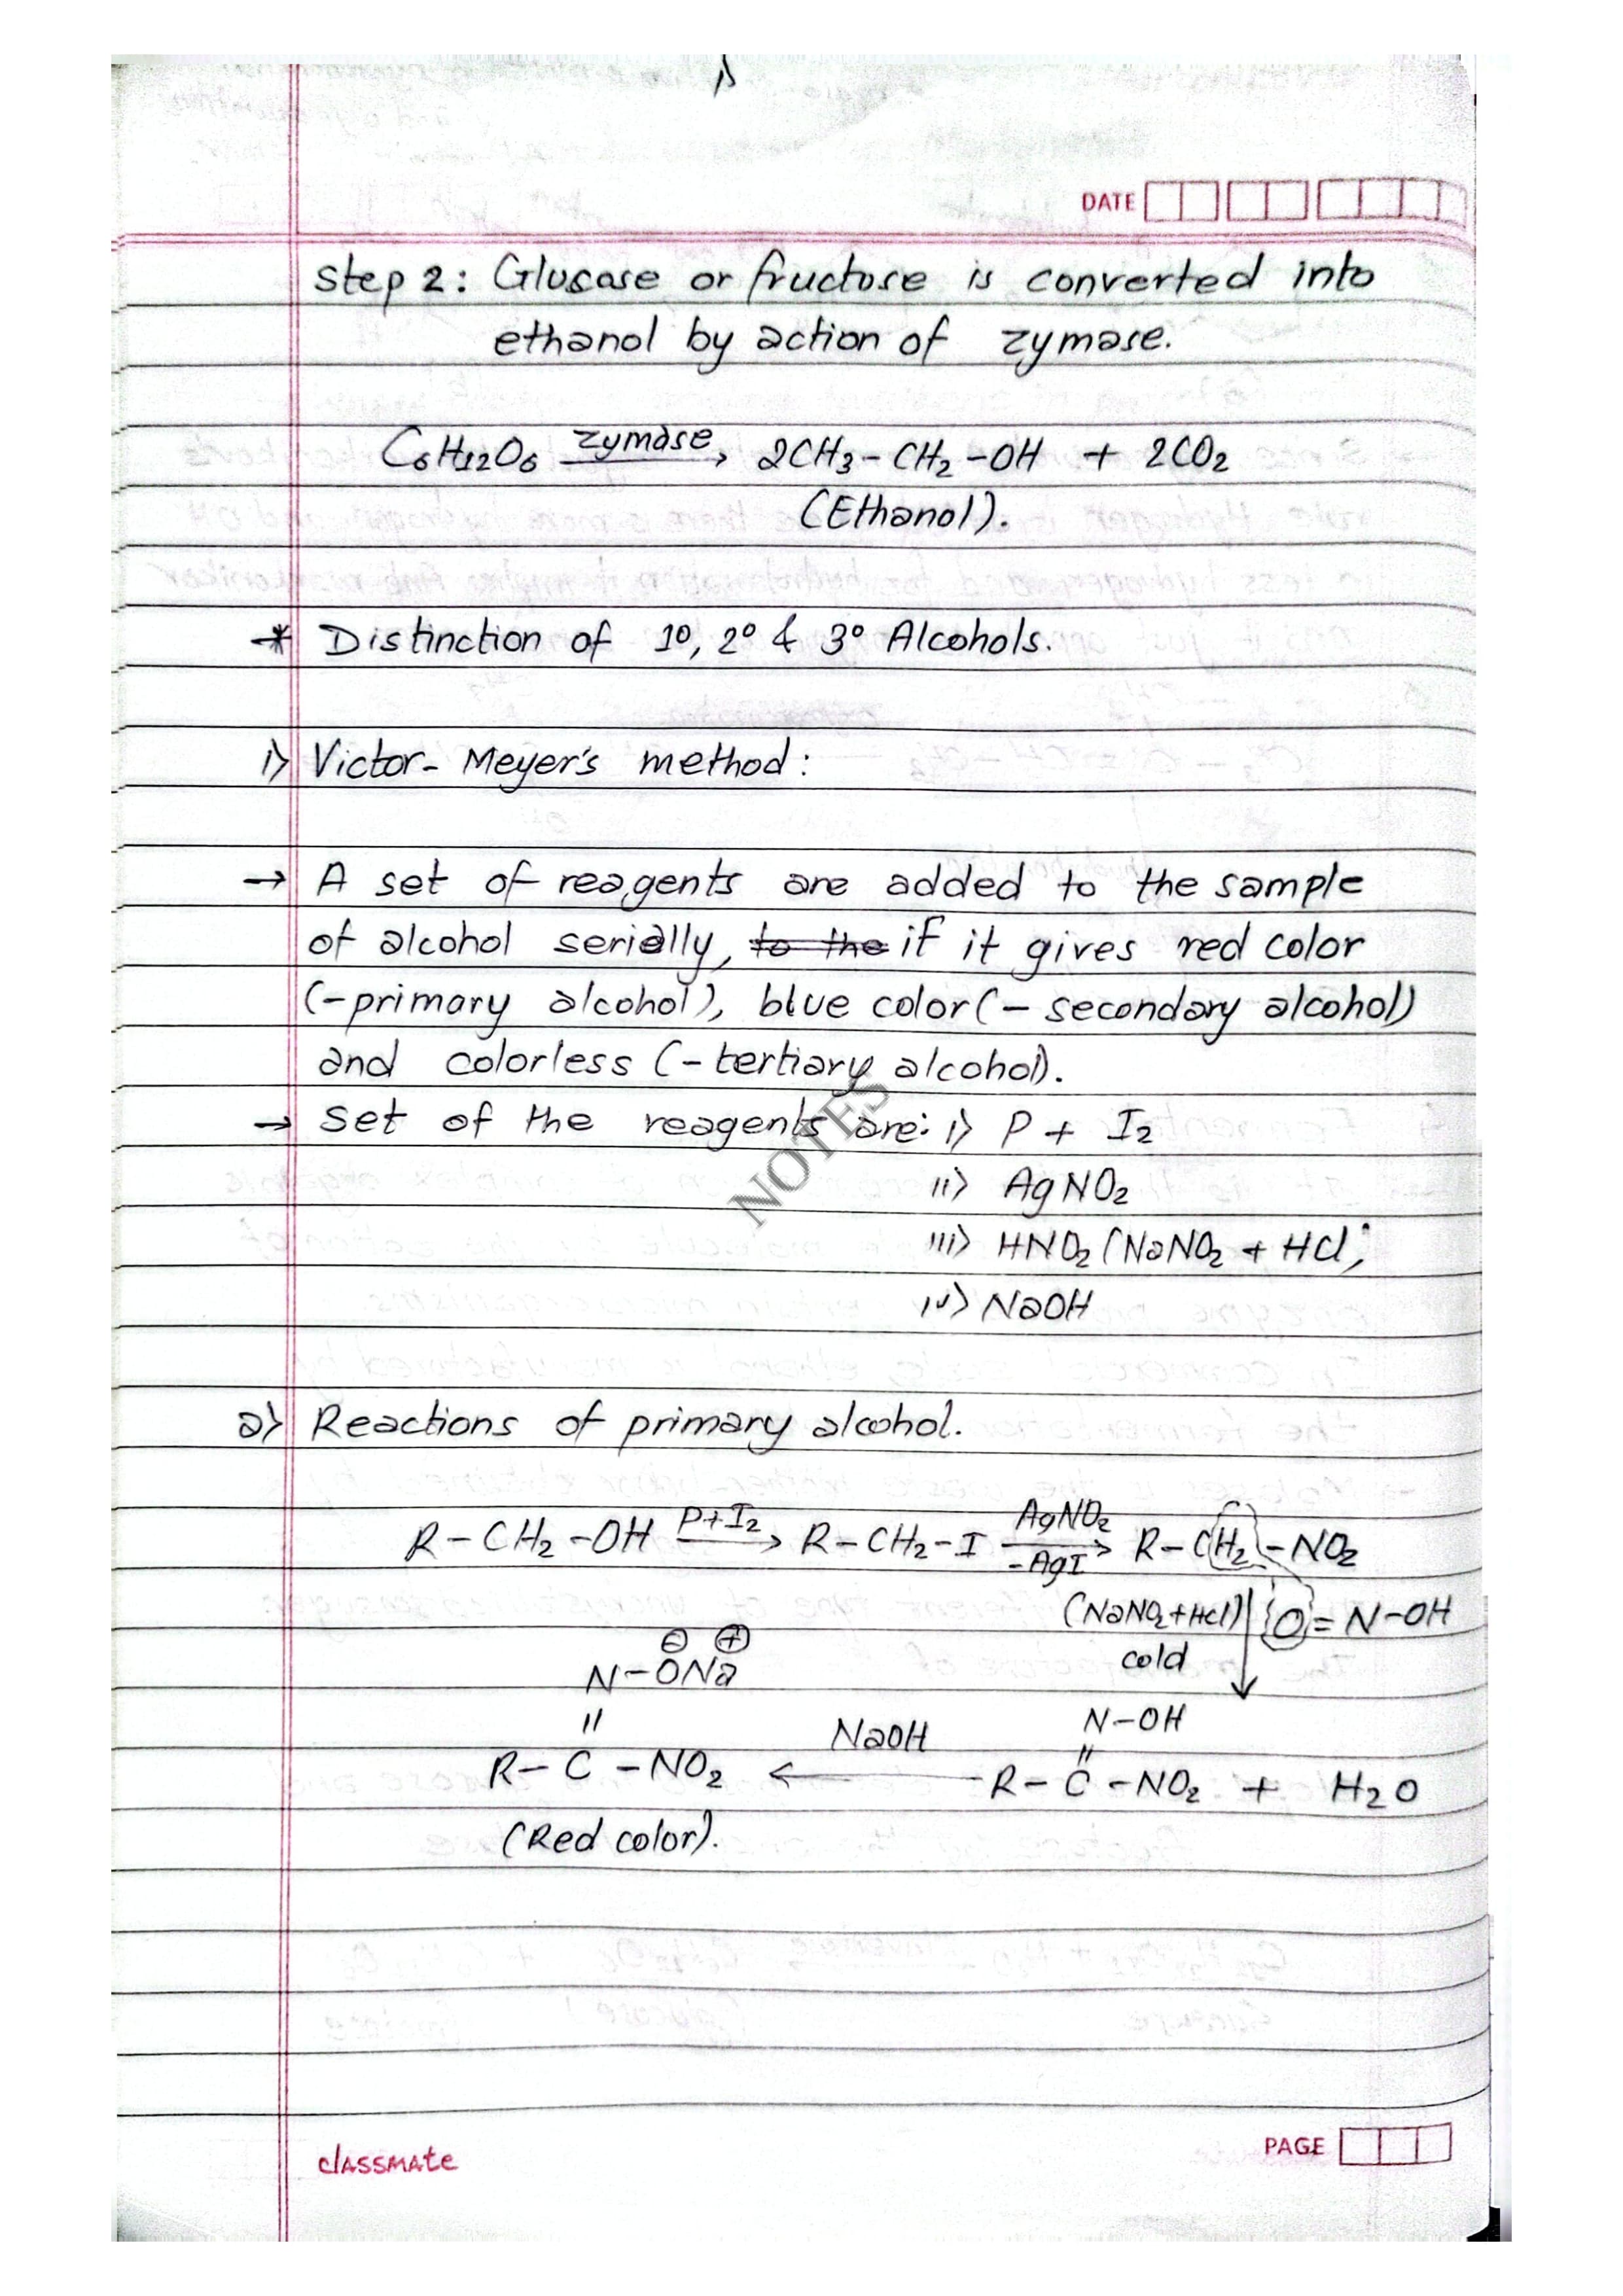 DATE
Step 2: Glucose or fructose is converted into
ethanol by action of zymase.
C6H12O6 —zymase→ 2CH3-CH2-OH + 2CO2
(Ethanol).
* Distinction of 1º, 2º & 3º Alcohols.
i) Victor-Meyer's method:
→ A set of reagents are added to the sample
of alcohol serially, to the if it gives red color
(-primary alcohol), blue color (- secondary alcohol)
and colorless (- tertiary alcohol).
→ set of the reagents are: i) P + I2
NOTES
ii) AgNO2
iii) HNO2 (NaNO2 + HCl)
iv) NaOH
a) Reactions of primary alcohol.
R-CH2-OH —P+I2→ R-CH2-I —AgNO2/-AgI→ R-CH2-NO2
(NaNO2+HCl) ↓ O=N-OH
cold
N-O⊖Na⊕
N-OH
॥ NaOH ॥
R-C-NO2 ← R-C-NO2 + H2O
(Red color).
PAGE
classmate